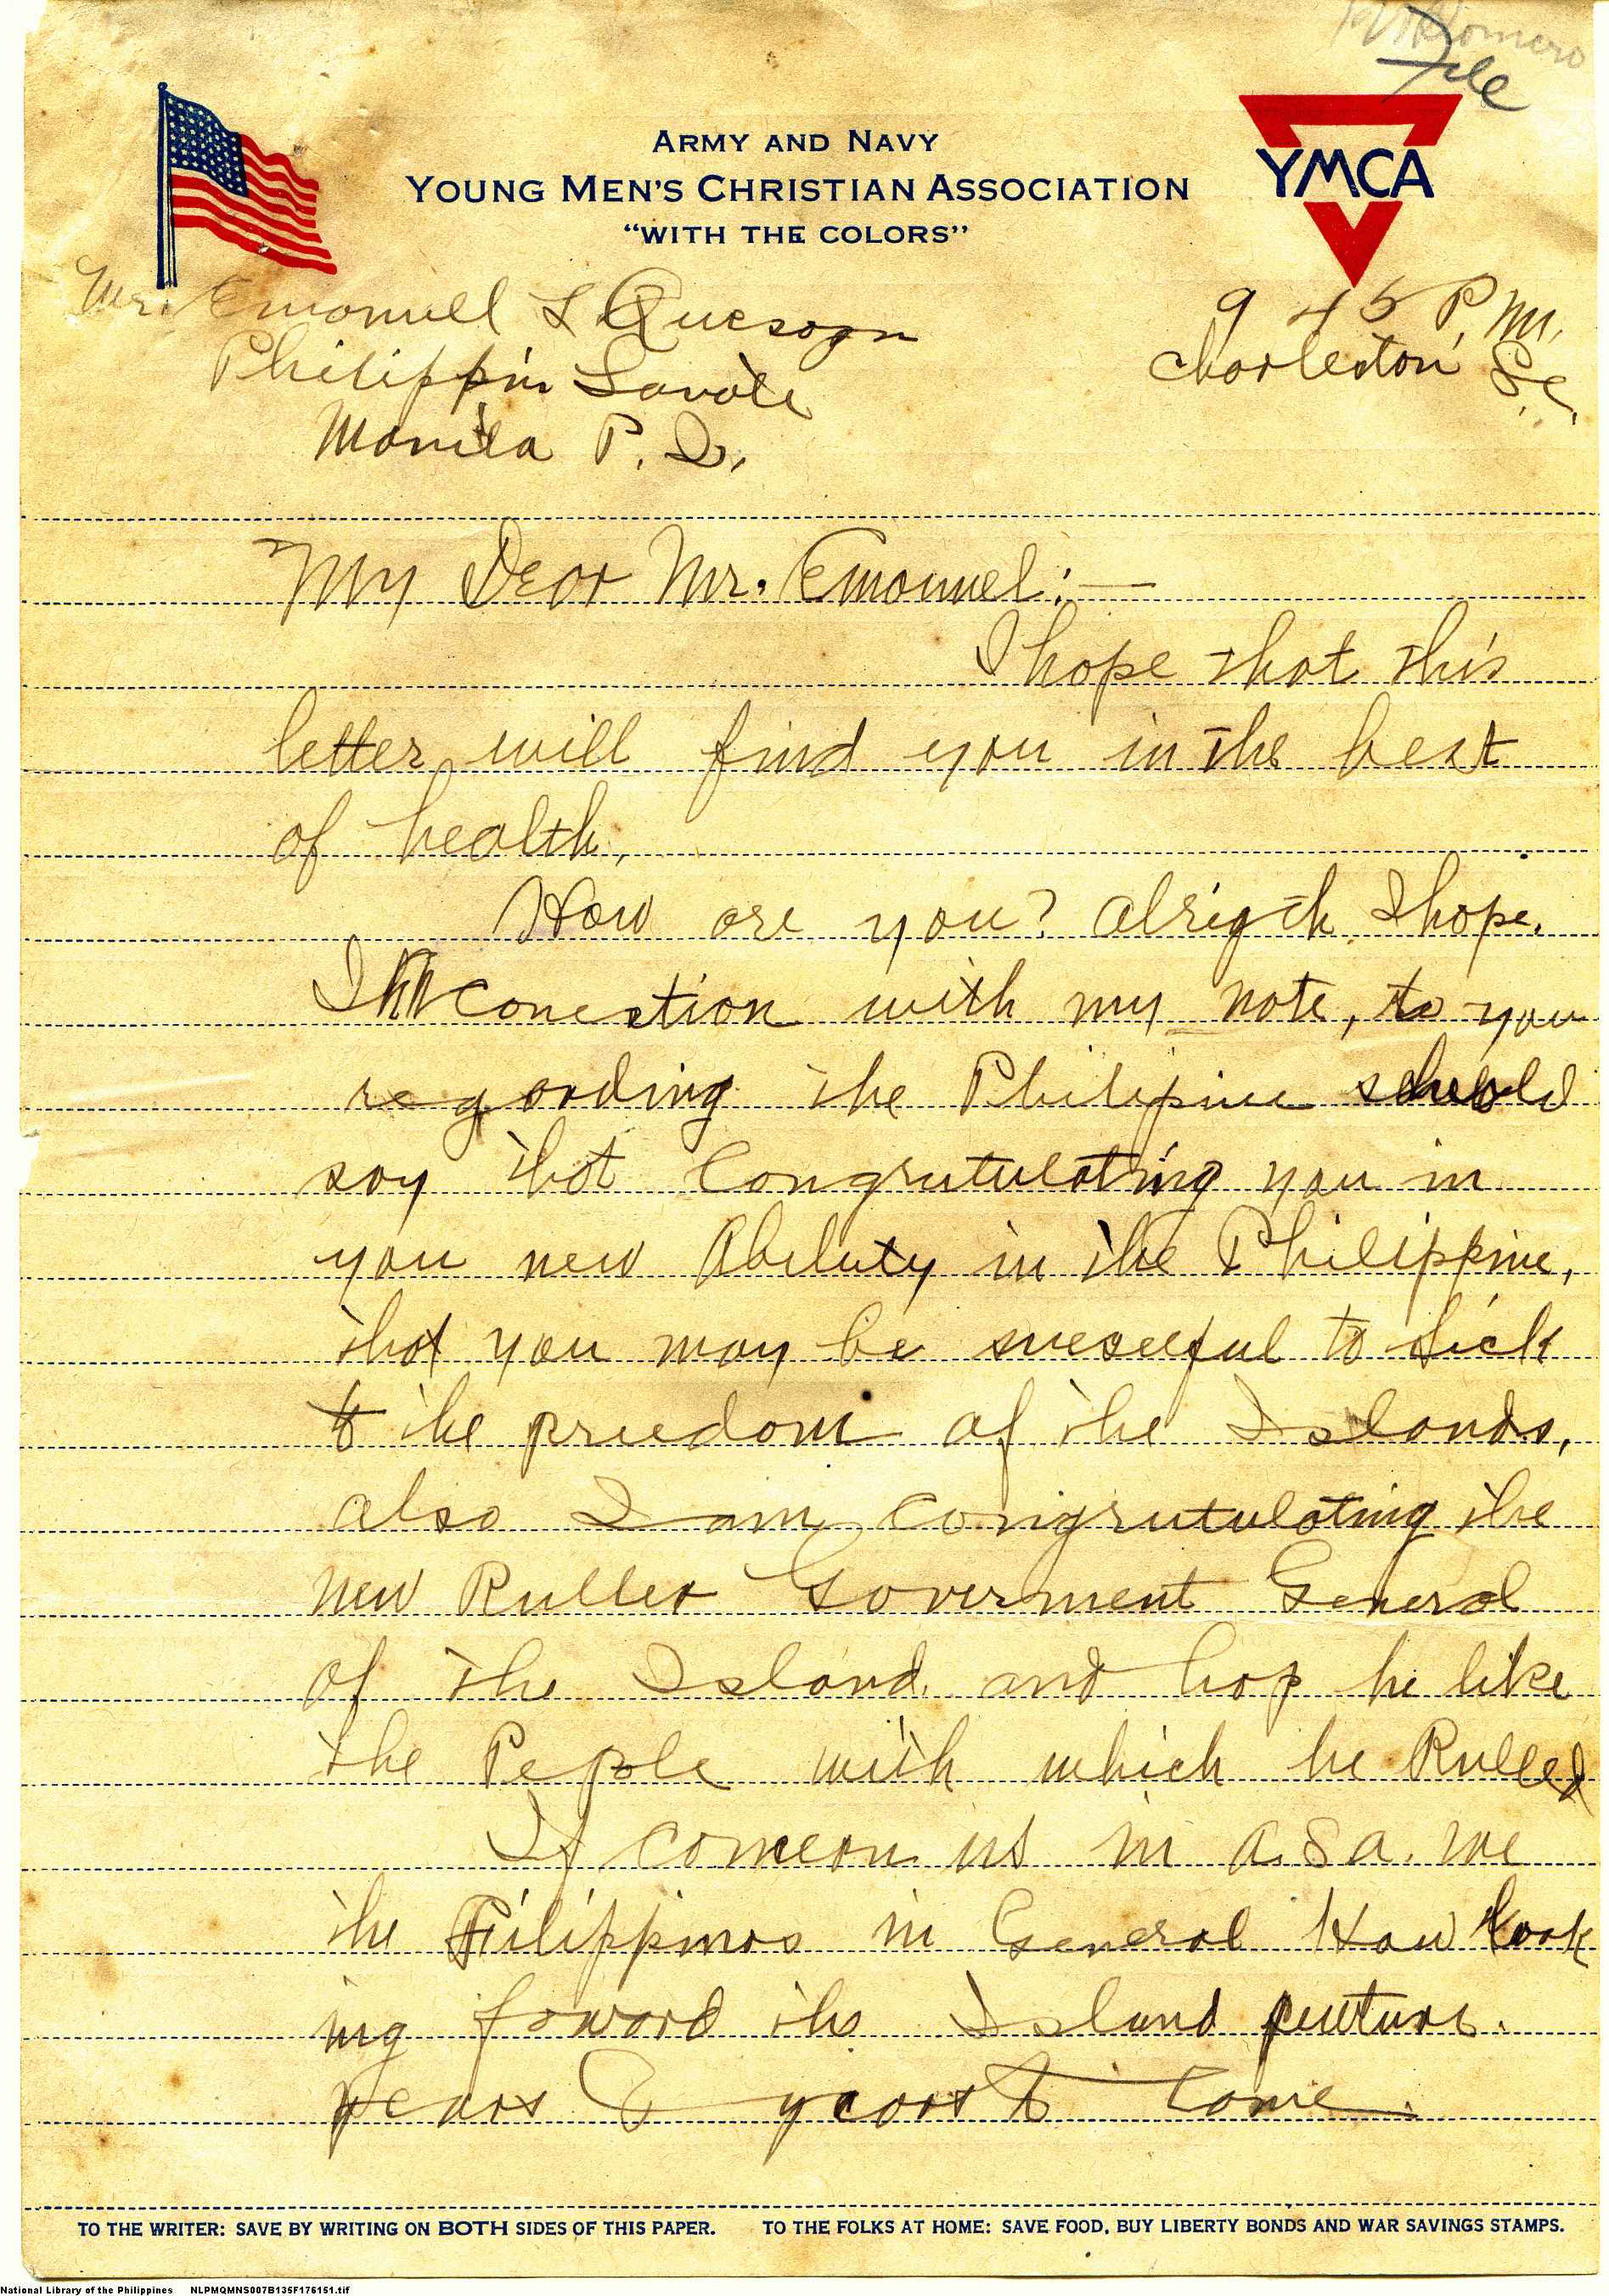 File
ARMY AND NAVY
YOUNG MEN'S CHRISTIAN ASSOCIATION
"WITH THE COLORS"
YMCA
Mr. Emonuell L Quesogn
9 45 P.M.
Philippin Senate
Charleston S.C.
Manila P. I.
My Dear Mr. Emonuel:—
I hope that this
letter will find you in the best
of health.
How are you? Alrigth I hope.
In conection with my note, to you
regarding the Philipine should
say that Congrutulating you in
you new Abiluty in the Philippine,
that you may be sucseeful to stick
to the preedom of the Islands,
also I am congrutulating the
new Ruller Goverment General
of the Island. and hop he like
the Peple with which he Rulled
If concern us in A.S.A. we
the Filippinos in General How look
ing foward the Island puture.
years years to Come.
TO THE WRITER: SAVE BY WRITING ON BOTH SIDES OF THIS PAPER. TO THE FOLKS AT HOME: SAVE FOOD, BUY LIBERTY BONDS AND WAR SAVINGS STAMPS.
National Library of the Philippines NLPMQMNS007B135F176151.tif